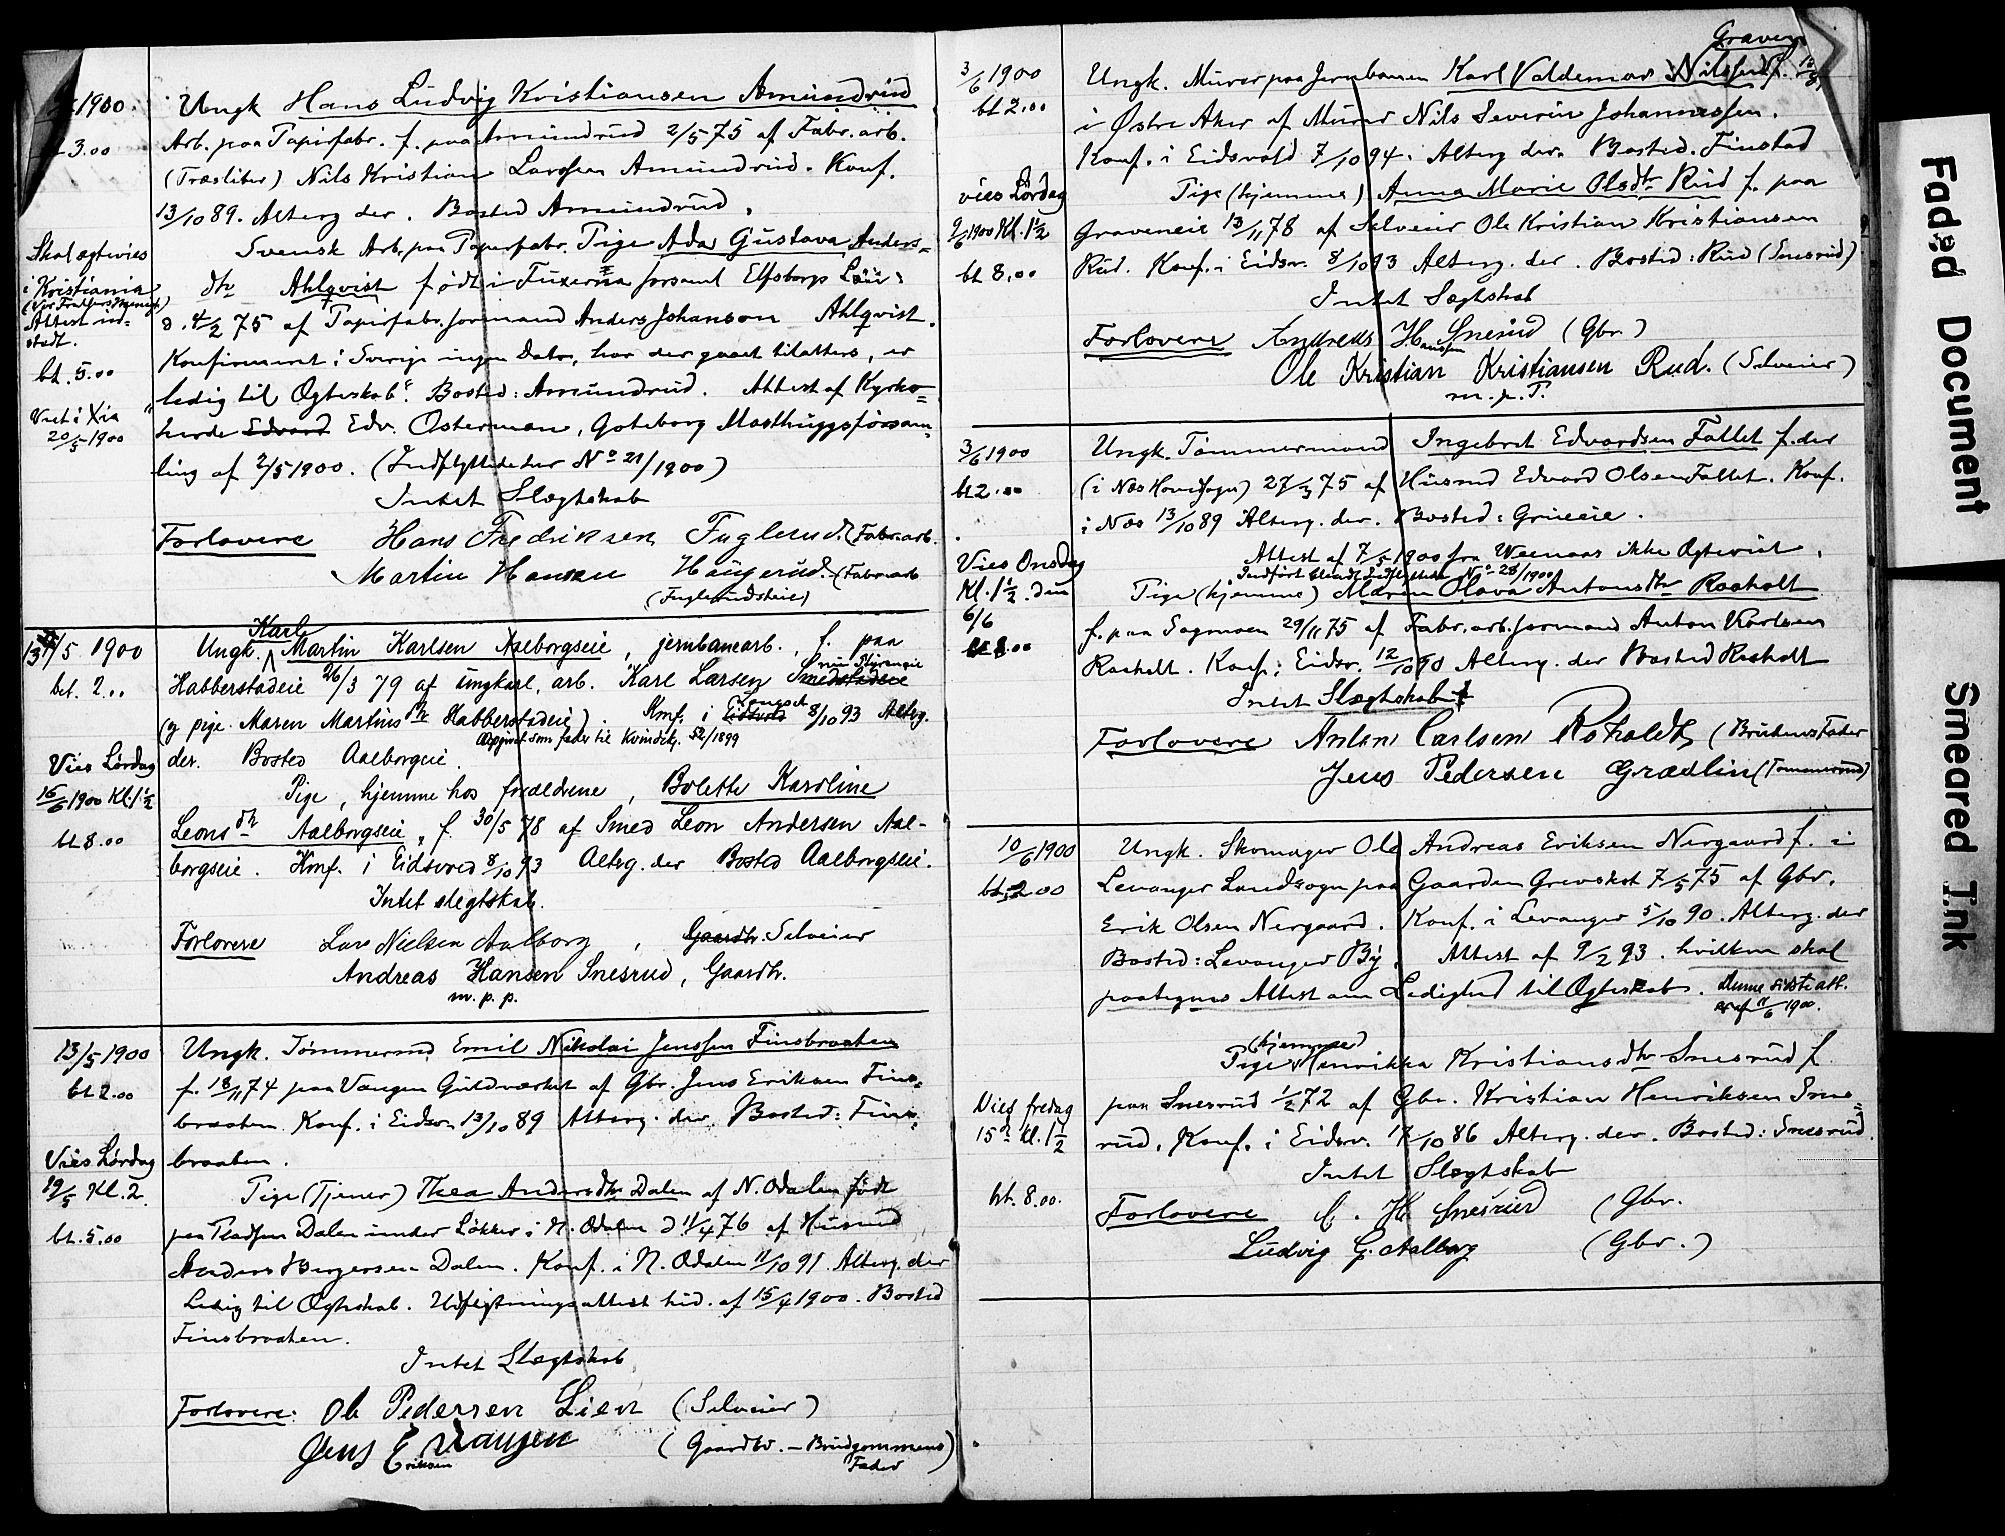 1900.
3.00
Ungk Hans Ludvig Kristiansen Amundrud
Arb. paa Papirfabr. f. paa Amundrud 2/5 75 af Fabr. arb.
(Træsliber) Nils Kristian Larsen Amundrud. Konf.
13/10 89. Alterg der. Bosted Amundrud.
Skal ægtevies
i Kristiania
Attest ud-
stedt.
bt. 5.00
Viet i Xia
20/5 1900
Svensk Arb. paa Papirfabr. Pige Ada Gustava Anders=
dtr Ahlqvist født i Fuxerna forsaml Elfsborgs Län
d. 4/2 75 af Papirfabr. formand Anders Johanson Ahlqvist.
Konfirmeret i Sverige ingen Dato, har der gaaet tilalters, er
ledig til Ægteskab. Bosted: Amundrud. Attest af Kyrko=
herde Edvard Edv. Osterman, Goteborg Masthuggsförsam=
ling af 2/5 1900. (Indflyttede No 21/1900)
Intet Slægtskab
Forlovere Hans Fredriksen Fuglerud. (Fabr. arb.
Martin Hansen Haugerud. (Fabr. arb
(Fuglerudseie)
13/5 1900
bet. 2..
Vies Lørdag
16/6 1900 Kl. 1 1/2
bt 8.00
Karl
Ungk. Martin Karlsen Aalborgseie, jernbanearb., f. paa
Habberstadeie 26/3 79 af ungkarl, arb. Karl Larsen Smedstadeie
(og pige Maren Martinsdtr Habberstadeie). Konf. i Eidsvold 8/10 93 Alterg.
Opgivet som fader til Kvindekj. 52/1899
der. Bosted Aalborgeie.
Pige, hjemme hos forældrene, Bolette Karoline
Leonsdtr Aalborgseie, f. 30/5 78 af Smed Leon Andersen Aal-
borgseie. Konf. i Eidsvold 8/10 93 Alterg. der Bosted Aalborgseie.
Intet slegtskab.
Forlovere Lars Nielsen Aalborg, Gaardbr. Selveier
Andreas Hansen Snesrud, Gaardbr.
m. p. p.
13/5 1900
bt 2.00
Vies Lørdag
19/5 Kl. 2
bt. 5.00
Ungk. Tømmermd Emil Nikolai Jenssen Finsbraaten
f. 18/11 74 paa Vangen Guldværket af Gbr. Jens Eriksen Fins=
braaten Konf. i Eidsv. 13/10 89 Alterg. der. Bosted: Fins=
braaten.
Pige (Tjener) Thea Andersdtr Dalen af N. Odalen født
paa Pladsen Dalen under Løkker i N. Odalen d 11/4 76 af Husmd
Anders Birgersen Dalen. Konf. i N. Odalen 11/10 91. Alterg. der
Ledig til Ægteskab. Udflytningsattest hid. af 15/4 1900. Bosted
Finsbraaten.
Intet Slægtskab
Forlovere: Ole Pedersen Lien (Selveier)
Jens E Vangen (Gaardbr. – Brudgommens)
Eriksen Fader
Graven
3/6 1900
bt 2.00
vies Lørdag
9/6 1900 Kl. 1 1/2
bt 8.00
Ungk. Murer paa Jernbanen Karl Valdemar Nilssen f.
i Østre Aker af Murer Nils Severin Johannessen.
Konf. i Eidsvold 7/10 94. Alterg der. Bosted. Finstad
Pige (hjemme) Anna Marie Olsdtr Rud f. paa
Graveneie 13/11 78 af Selveier Ole Kristian Kristiansen
Rud. Konf. i Eidsv. 8/10 93 Alterg. der. Bosted: Rud (Snesrud)
Intet Slægtskab
Forlovere Andreas H Snesrud (Gbr.)
Hanssen
Ole Kristian Kristiansen Rud. (Selveier)
m. p. P.
3/6 1900
bt 2.00
Vies Onsdag
Kl. 1 1/2. den
6/6
Ungk. Tømmermand Ingebret Edvardsen Fallet f. der
(i Næs Hovedsogn) 27/3 75 af Husmd Edvard Olsen Fallet. Konf.
i Næs 13/10 89 Alterg. der. Bosted: Grueeie.
Attest af 7/5 1900 fra Weenaas ikke Ægteviet.
Indført blandt Indflyttede No 28/1900
Pige (hjemme) Maren Olava Antonsdtr Raaholt
f. paa Sagmoen 29/11 75 af Fabr. arb. formand Anton Karlsen
Raaholt. Konf. i Eidsv. 12/10 90 Alterg. der Bosted Raaholt
Intet Slægtskab
Forlovere Anton Carlsen Roholdt (Brudens Fader
Jens Pedersen Grædlin (Tømmermd)
10/6 1900
bt 2.00
Vies fredag
15de Kl. 1 1/2
bt. 8.00.
Ungk. Skomager Ole Andreas Eriksen Nergaard f. i
Levanger Landsogn paa Gaarden Grevskot 7/5 75 af Gbr.
Erik Olsen Nergaard. Konf. i Levanger 5/10 90. Alterg. der
Bosted: Levanger By. Attest af 9/2 93. hvilken skal
paategnes Attest om Ledighed til Ægteskab. denne sidste att.
er af 11/6 1900.
(hjemme)
Pige Henrikka Kristiansdtr Snesrud f
paa Snesrud 1/2 72 af Gbr. Kristian Henriksen Snes=
rud. Konf. i Eidsv. 17/10 86 Alterg. der. Bosted: Snesrud.
Intet Slægtskab
Forlovere C. H Snesrud (Gbr.
Ludvig G. Aalborg (Gbr.)
Faded Document
Smeared Ink